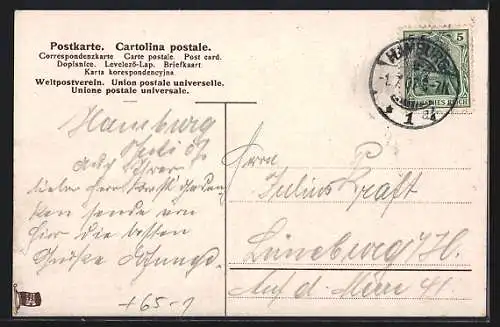 Postkarte. Cartolina postale.
Correspondenzkarte Carte postale. Post card.
Dopisnice. Levelező-Lap. Briefkaart
Karta korespondencyjna
Weltpostverein. Union postale universelle.
Unione postale universale.
5 5
HAMBURG
1
Hamburg
Auch Ihrer
lieber Herr Kraft
sende von
hier die besten
Grüße
Herrn
Julius Kraft
Lüneburg / H.
Auf d. Meer 41.
+65-1